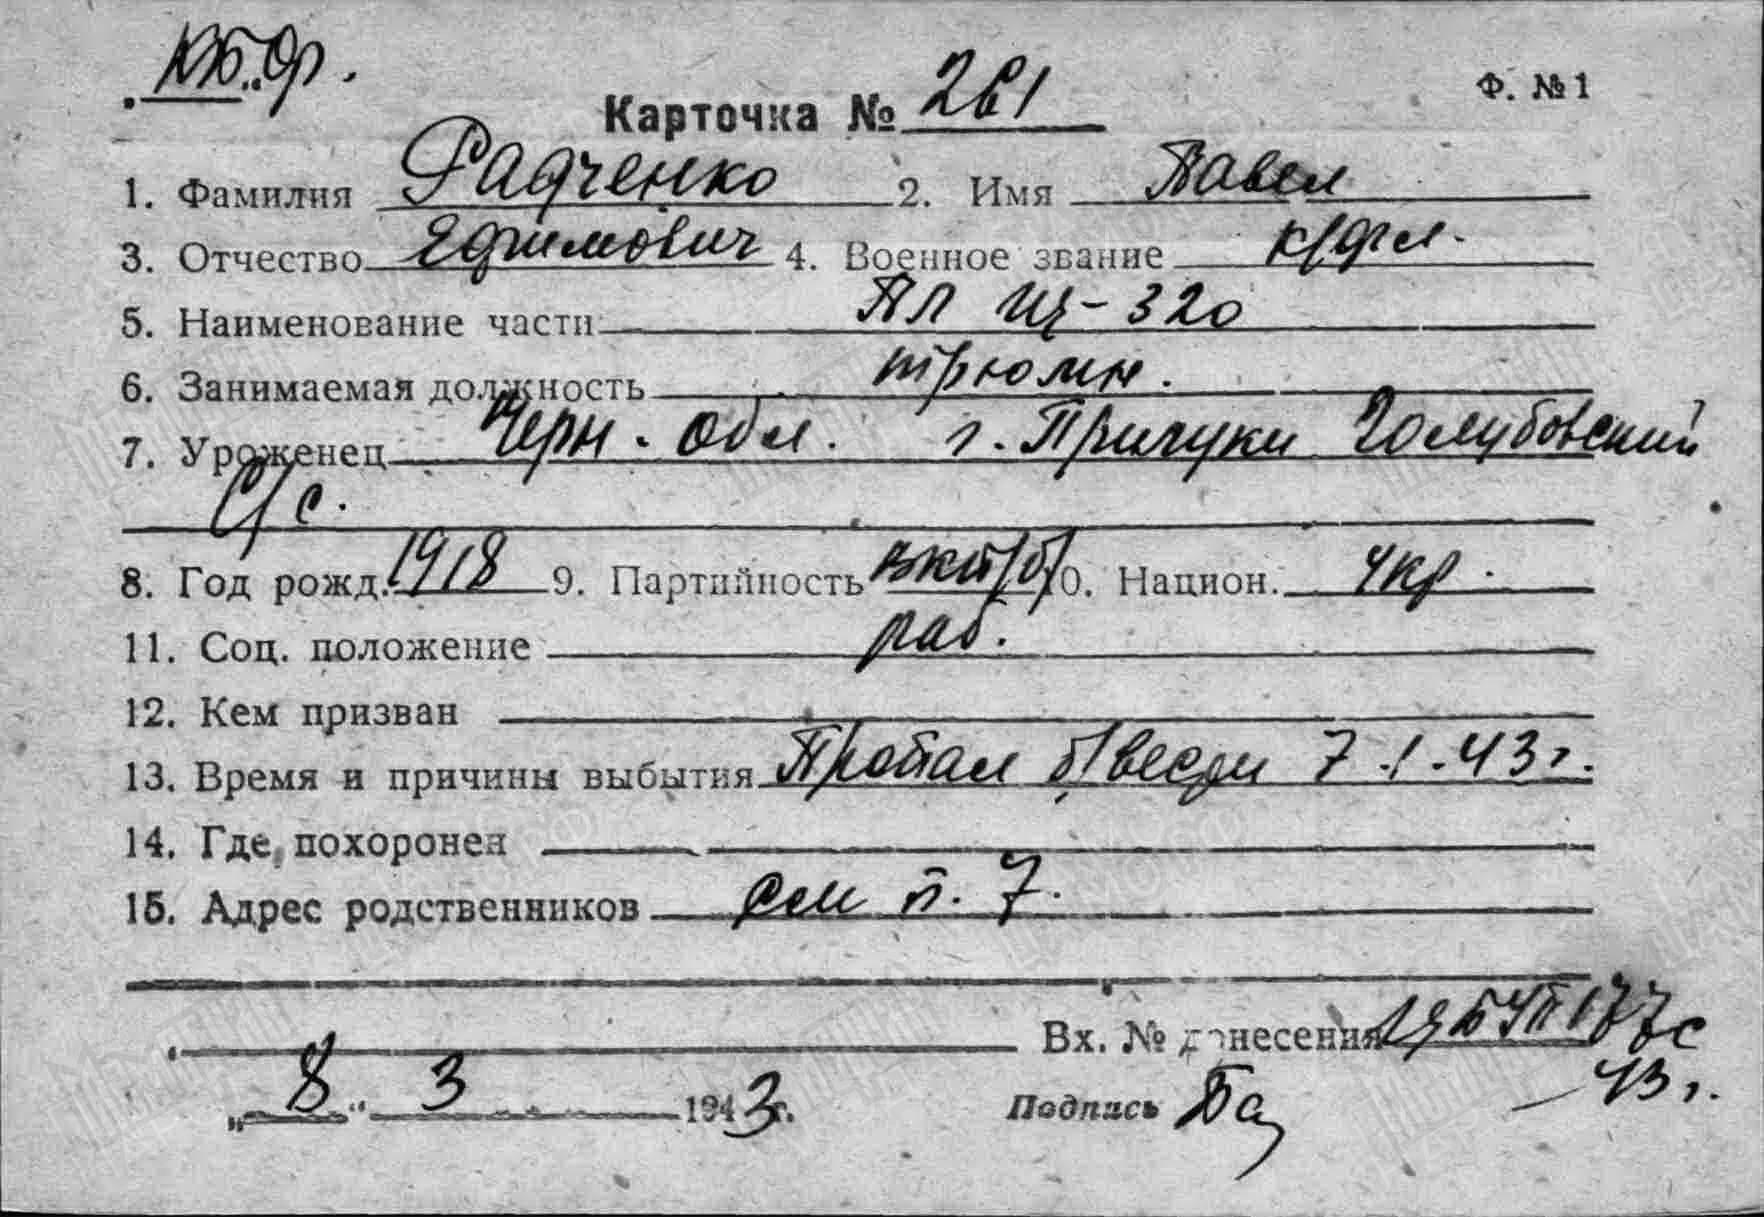 КБФ.
Ф. №1
Карточка № 261
1. Фамилия Радченко 2. Имя Павел
3. Отчество Ефимович 4. Военное звание к/фл.
5. Наименование части ПЛ Щ-320
6. Занимаемая должность трюмн.
7. Уроженец Черн. обл. г. Прилуки Голубовский
с/с.
8. Год рожд. 1918 9. Партийность ВКП/б/ 10. Национ. укр.
11. Соц. положение раб.
12. Кем призван
13. Время и причины выбытия Пропал б/вести 7.1.43г.
14. Где похоронен
15. Адрес родственников См п. 7.
Вх. № донесения
43 г.
„8“ 3 1943г. Подпись